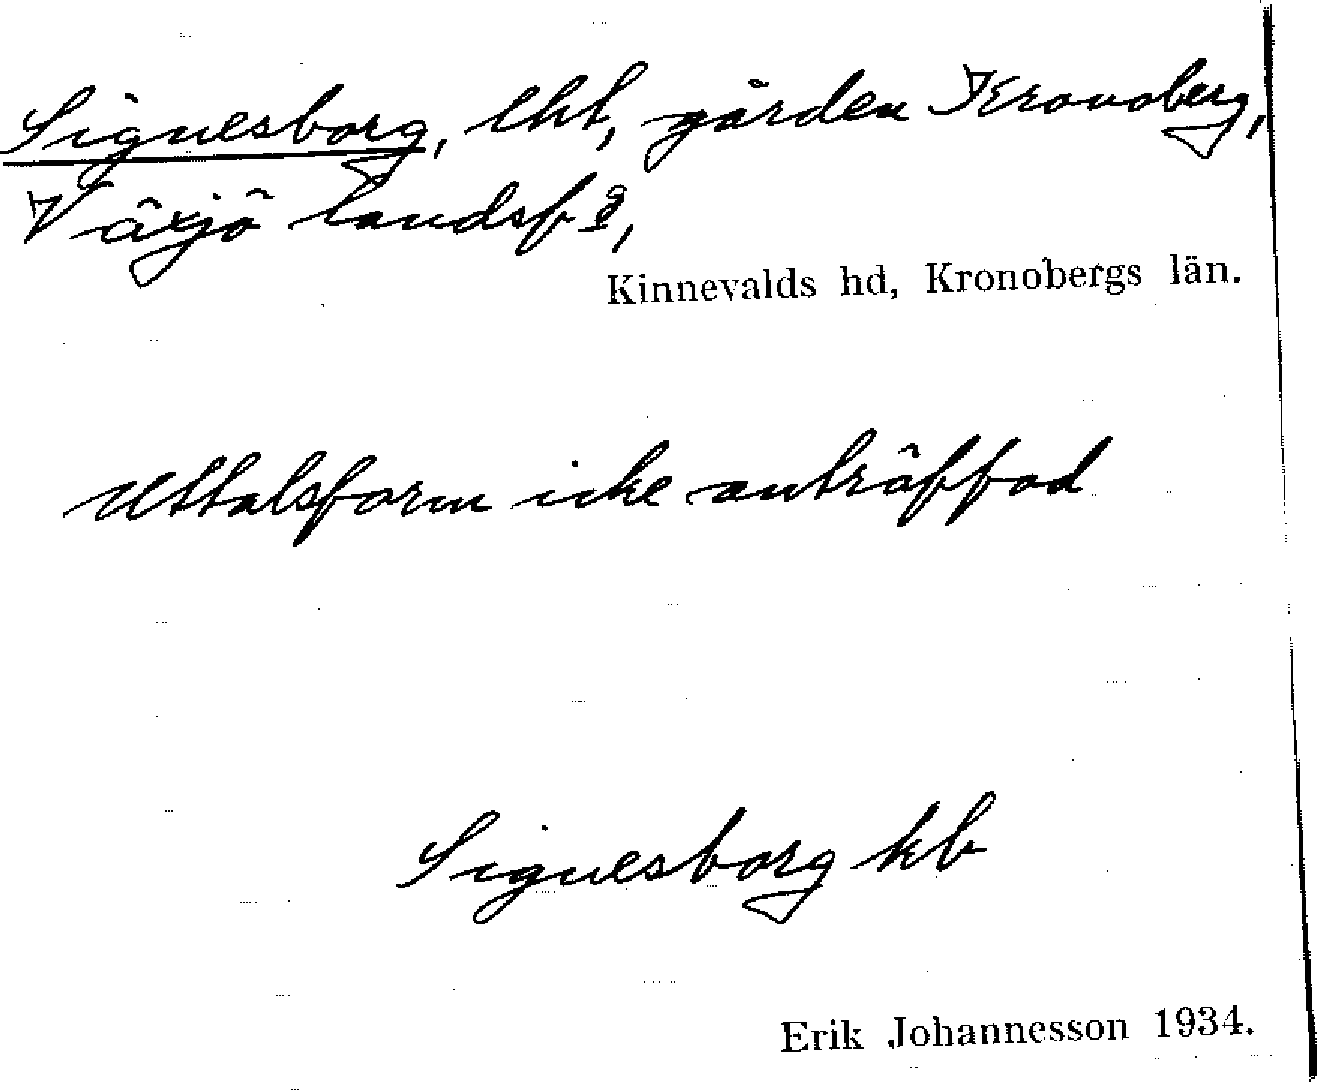 Signesborg, lht, gården Kronoberg,
Växjö landsf.,
Kinnevalds hd, Kronobergs län.
Uttalsform icke anträffad
Signesborg kb
Erik Johannesson 1934.